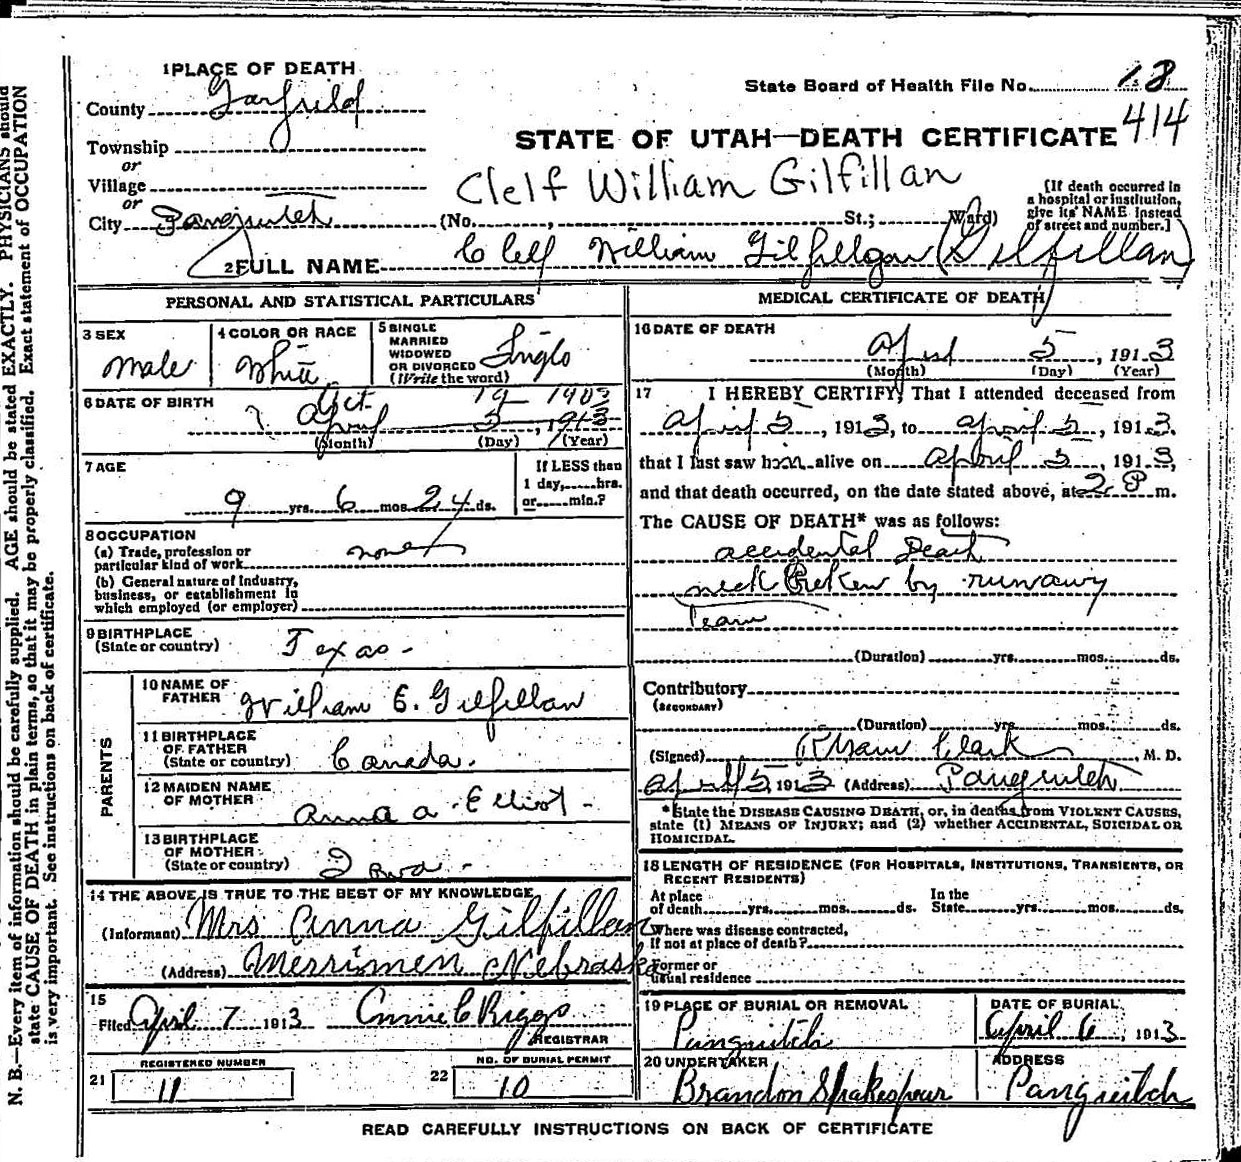 1 PLACE OF DEATH
County Garfield
State Board of Health File No. 18
414
Township
or
Village
or
City Panguitch
STATE OF UTAH—DEATH CERTIFICATE
Clelf William Gilfillan
(No. St.; Ward)
[If death occurred in
a hospital or institution,
give its NAME instead
of street and number.]
2 FULL NAME Clelf William Gilfillgan (Gilfillan)
PERSONAL AND STATISTICAL PARTICULARS
3 SEX
Male
4 COLOR OR RACE
White
5 SINGLE
MARRIED
WIDOWED
OR DIVORCED
(Write the word)
Single
6 DATE OF BIRTH
Oct. 19 1903
? April 5, 1913
(Month) (Day) (Year)
7 AGE
9 yrs. 6 mos. 24 ds.
If LESS than
1 day, hrs.
or min.?
8 OCCUPATION
(a) Trade, profession or
particular kind of work none
(b) General nature of Industry,
business, or establishment in
which employed (or employer)
9 BIRTHPLACE
(State or country) Texas -
PARENTS
10 NAME OF
FATHER William E. Gilfillan
11 BIRTHPLACE
OF FATHER
(State or country) Canada.
12 MAIDEN NAME
OF MOTHER Anna A. Elliot -
13 BIRTHPLACE
OF MOTHER
(State or country) Iowa
14 THE ABOVE IS TRUE TO THE BEST OF MY KNOWLEDGE
(Informant) Mrs Anna Gilfillan
(Address) Merrimen Nebraska
15
Filed April 7 1913 Annie C Riggs
REGISTRAR
REGISTERED NUMBER
21 11
NO. OF BURIAL PERMIT
22 10
MEDICAL CERTIFICATE OF DEATH
16 DATE OF DEATH
April 5, 1913
(Month) (Day) (Year)
17 I HEREBY CERTIFY, That I attended deceased from
April 5, 1913, to April 5, 1913.
that I last saw him alive on April 5, 1913,
and that death occurred, on the date stated above, at 2 P m.
The CAUSE OF DEATH* was as follows:
accidental Death
neck broken by runaway
Team
(Duration) yrs. mos. ds.
Contributory
(SECONDARY)
(Duration) yrs. mos. ds.
(Signed) Clark, M. D.
April 5, 1913 (Address) Panguitch
*State the DISEASE CAUSING DEATH, or, in deaths from VIOLENT CAUSES,
state (1) MEANS OF INJURY; and (2) whether ACCIDENTAL, SUICIDAL OR
HOMICIDAL.
18 LENGTH OF RESIDENCE (FOR HOSPITALS, INSTITUTIONS, TRANSIENTS, OR
RECENT RESIDENTS)
At place
of death yrs. mos. ds.
In the
State yrs. mos. ds.
Where was disease contracted,
If not at place of death?
Former or
usual residence
19 PLACE OF BURIAL OR REMOVAL
Panguitch
DATE OF BURIAL
April 6, 1913
20 UNDERTAKER
Brandon Shakespear
ADDRESS
Panguitch
READ CAREFULLY INSTRUCTIONS ON BACK OF CERTIFICATE
N. B.—Every item of information should be carefully supplied. AGE should be stated EXACTLY. PHYSICIANS should
state CAUSE OF DEATH in plain terms, so that it may be properly classified. Exact statement of OCCUPATION
is very important. See instructions on back of certificate.